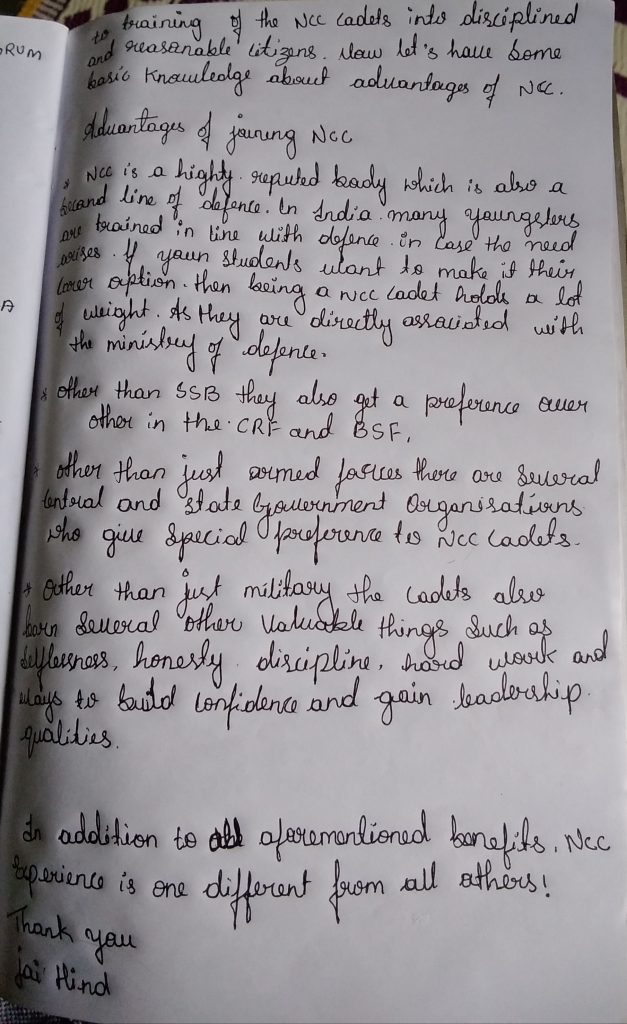 RUM
A
to training of the NCC cadets into disciplined
and reasonable citizens. Now let's have some
basic knowledge about advantages of NCC.
Advantages of joining NCC
* NCC is a highty reputed body which is also a
second line of defence. In India many youngsters
are trained in line with defence in case the need
arises. If youn students want to make it their
career option. then being a NCC cadet holds a lot
of weight. As they are directly associated with
the ministry of defence.
* other than SSB they also get a preference over
other in the CRF and BSF.
* other than just armed forces there are several
central and state Government Organisations
who give special preference to NCC cadets.
* Outher than just military the cadets also
learn several other valuable things such as
selflessness, honesty discipline, hard work and
ways to build confidence and gain leadership
qualities.
In addition to all aforementioned benefits, NCC
experience is one different from all others!
Thank you
Jai Hind